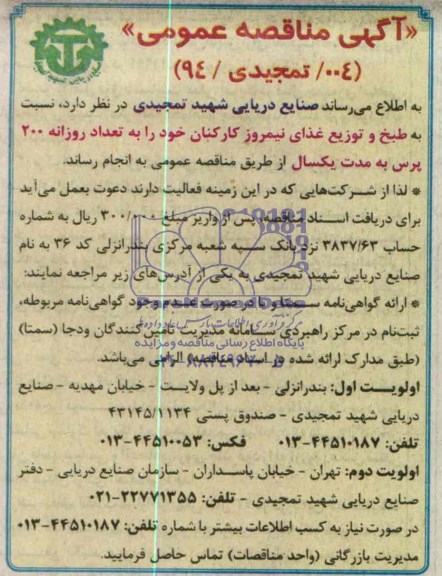 «آگهی مناقصه عمومی»
(۰۰۴/ تمجیدی / ۹۴)
به اطلاع می‌رساند صنایع دریایی شهید تمجیدی در نظر دارد، نسبت
به طبخ و توزیع غذای نیمروز کارکنان خود را به تعداد روزانه ۲۰۰
پرس به مدت یکسال از طریق مناقصه عمومی به انجام رساند.
* لذا از شرکت‌هایی که در این زمینه فعالیت دارند دعوت بعمل می‌آید
برای دریافت اسناد مناقصه، پس از واریز مبلغ ۳۰۰/۰۰۰ ریال به شماره
حساب ۳۸۳۷/۶۳ نزد بانک سپه شعبه مرکزی بندرانزلی کد ۳۶ به نام
صنایع دریایی شهید تمجیدی به یکی از آدرس‌های زیر مراجعه نمایند:
* ارائه گواهی‌نامه سمتا و یا در صورت عدم وجود گواهی‌نامه مربوطه،
ثبت‌نام در مرکز راهبردی سامانه مدیریت تامین‌کنندگان ودجا (سمتا)
(طبق مدارک ارائه شده در اسناد مناقصه) الزامی می‌باشد.
اولویت اول: بندرانزلی - بعد از پل ولایت - خیابان مهدیه - صنایع
دریایی شهید تمجیدی - صندوق پستی ۴۳۱۴۵/۱۱۳۴
تلفن: ۴۴۵۱۰۱۸۷-۰۱۳ فکس: ۴۴۵۱۰۰۵۳-۰۱۳
اولویت دوم: تهران - خیابان پاسداران - سازمان صنایع دریایی - دفتر
صنایع دریایی شهید تمجیدی - تلفن: ۲۲۷۷۱۳۵۵-۰۲۱
در صورت نیاز به کسب اطلاعات بیشتر با شماره تلفن: ۴۴۵۱۰۱۸۷-۰۱۳
مدیریت بازرگانی (واحد مناقصات) تماس حاصل فرمایید.
پایگاه اطلاع رسانی مناقصه و مزایده